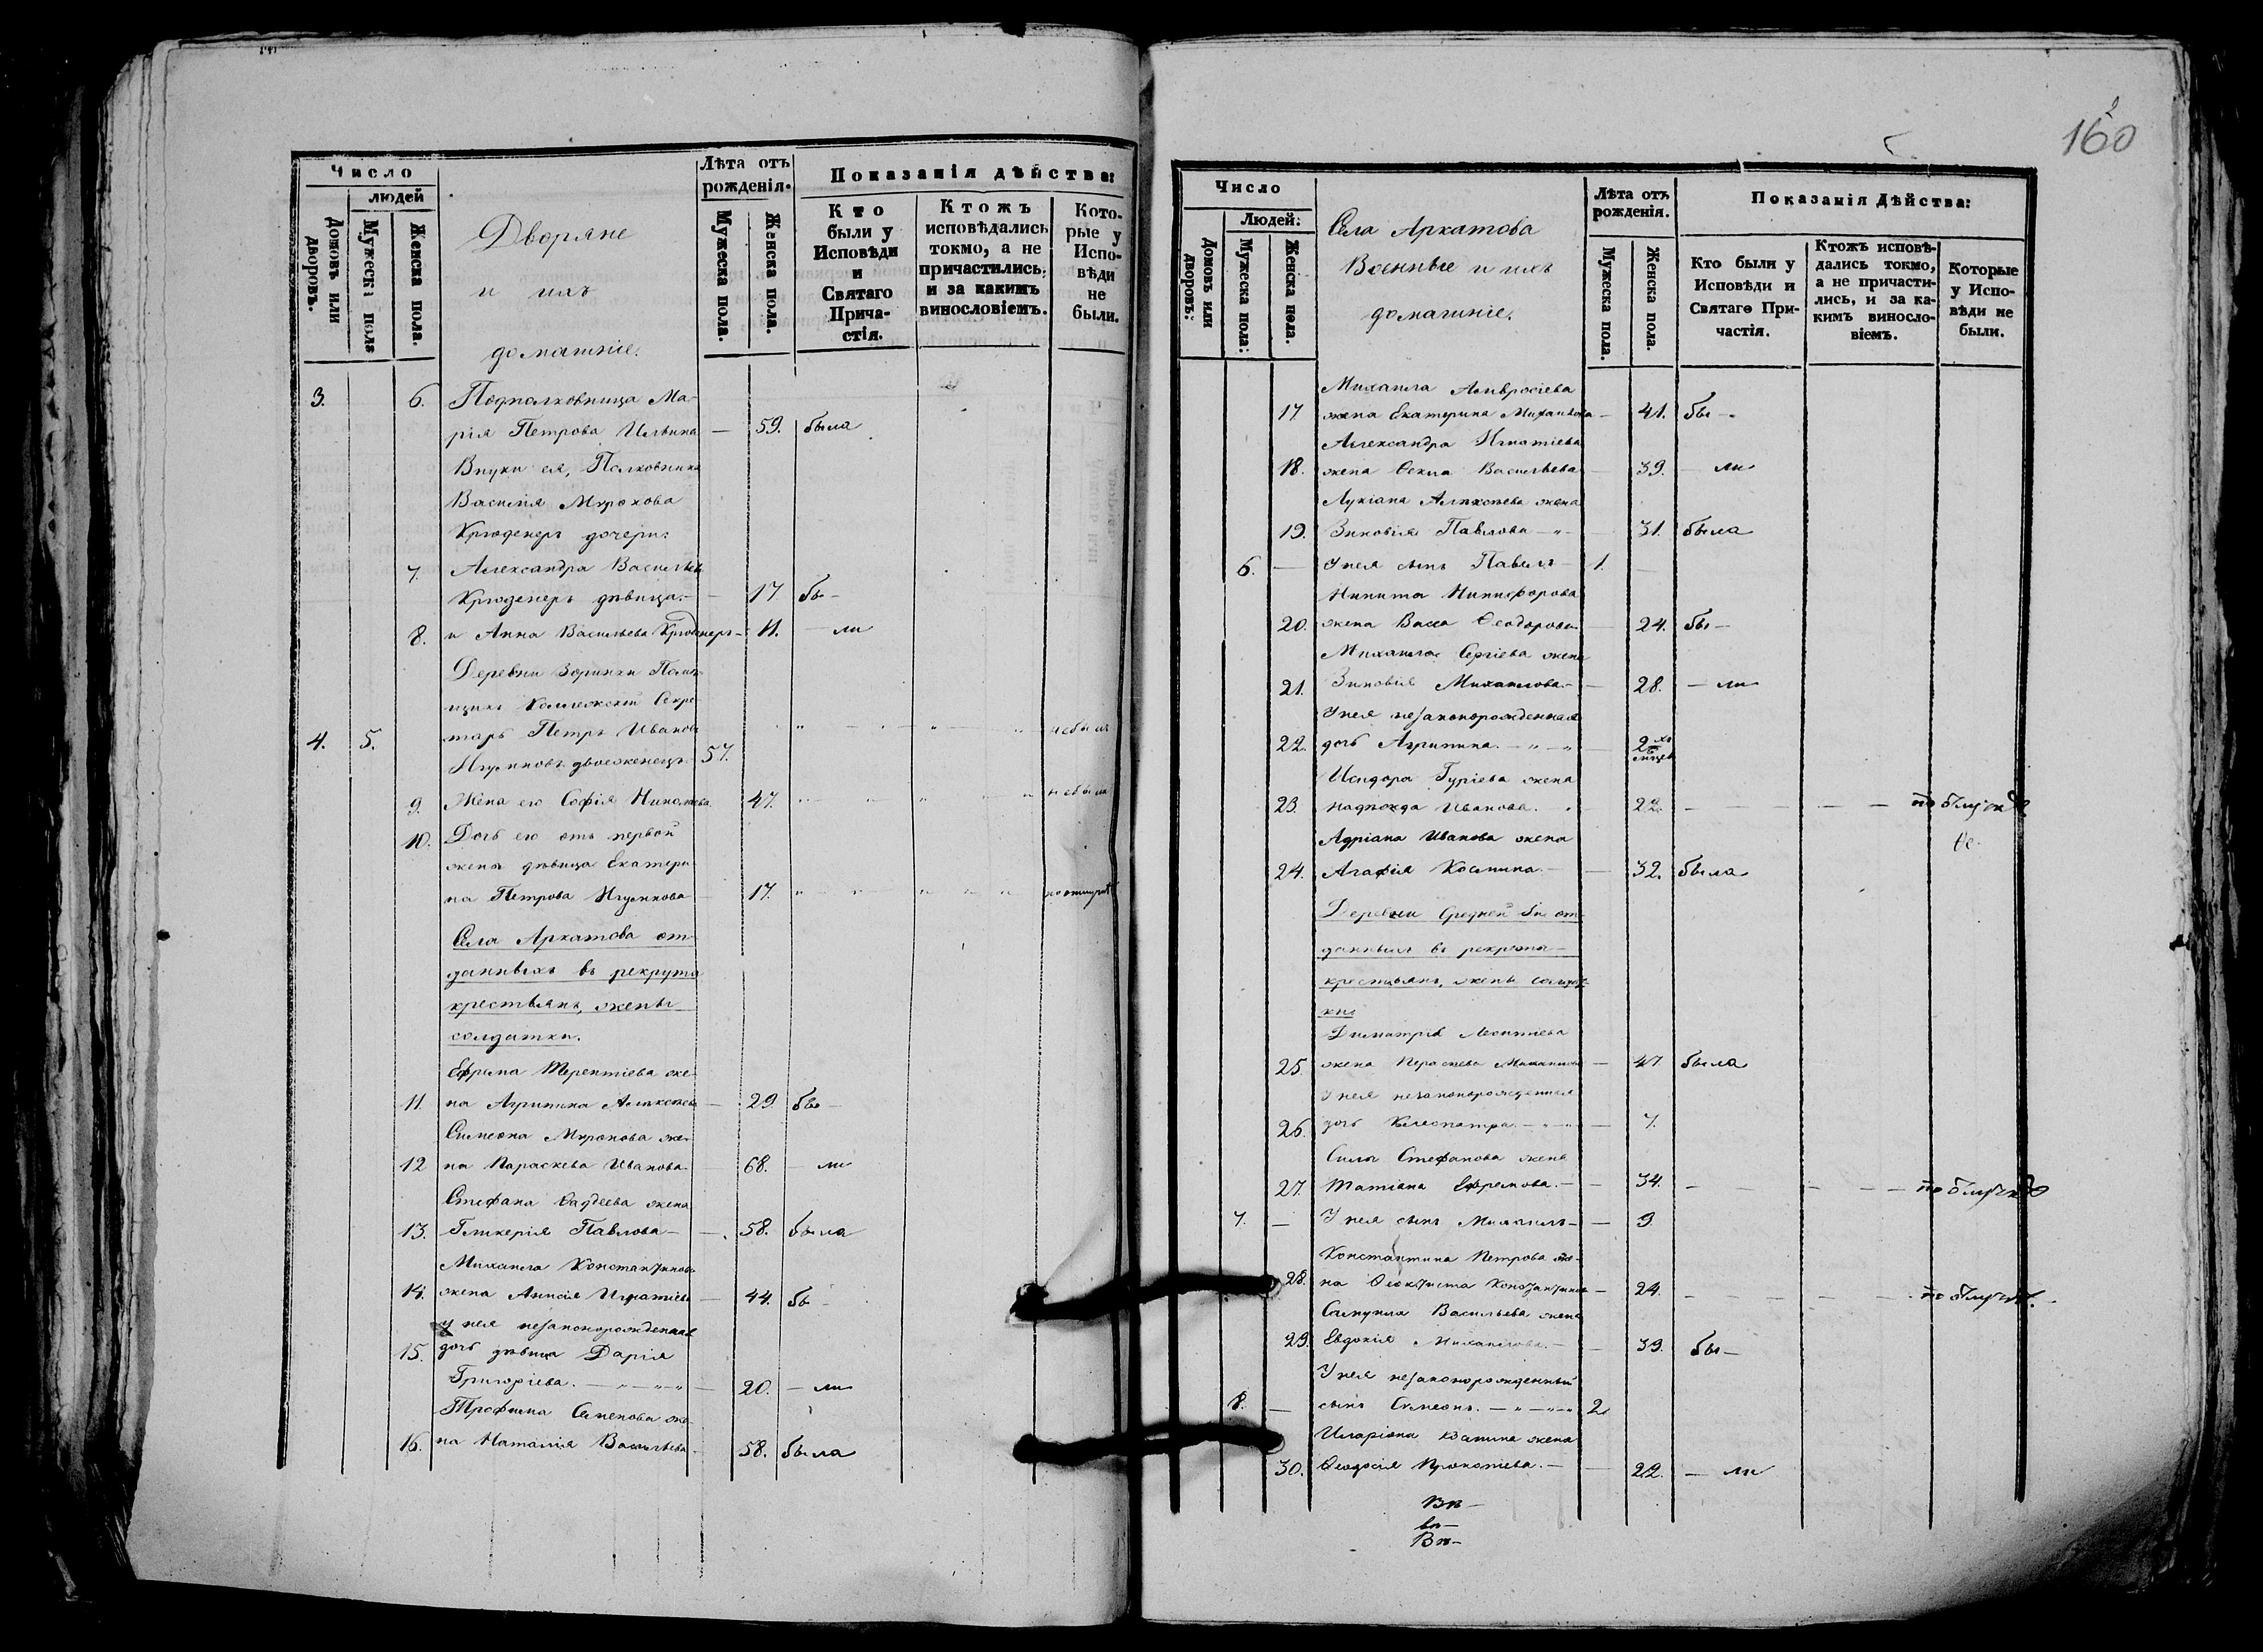 Число
людей
Домовъ или дворовъ.
Мужеска пола
Женска пола.
Дворяне
и ихъ
домашніе.
Лѣта отъ рожденія.
Мужеска пола.
Женска пола.
Показанія дѣйства:
Кто были у Исповѣди и Святаго Прича-стія.
Ктожъ исповѣдались токмо, а не причастились; и за какимъ винословіемъ.
Кото-рые у Испо-вѣди не были.
3. 6. Подполковница Ма-
рія Петрова Ильина — 59. была
Внуки ея, Полковника
Василія
Крюденеръ дочери:
7. Александра Васильева
Крюденеръ дѣвица. — 17 бы —
8. и Анна Васильева Крюденеръ — 11. — ли
Деревни Зоринки Помѣ-
щикъ Коллежскій Секре-
4. 5. тарь Петръ Ивановъ небылъ
двоеженецъ. 57.
9. Жена его Софія Николаева 47. небыла
10. Дочь его отъ первой
жены дѣвица Екатери-
на Петрова 17.
Села Аркатова от-
данныхъ въ рекруты
крестьянъ, жены
солдатки.
Ефрема Терентіева же-
11. на Агрипина Алексѣева — 29. бы —
Симеона Миронова же-
12 на Параскева Иванова 68. — ли
Стефана Фаддеева жена
13. Гликерія Павлова — 58. была
Михаила Константинова
14. жена Анисія Игнатіева — 44. бы —
у нея незаконорожденная
15. дочь дѣвица Дарія
Григоріева. — 20. — ли
Трофима Семенова же-
16. на Наталія Васильева 58. была
160
Число
Людей:
Домовъ или дворовъ:
Мужеска пола:
Женска пола.
Села Аркатова
Военные и ихъ
домашніе.
Лѣта отъ рожденія.
Мужеска пола.
Женска пола.
Показанія Дѣйства:
Кто были у Исповѣди и Святаго При-частія.
Ктожъ исповѣ-дались токмо, а не причасти-лись, и за ка-кимъ виносло-віемъ.
Которые у Испо-вѣди не были.
Михаила Амвросіева
17 жена Екатерина Михаилова — 41. бы —
Александра Игнатіева
18. жена Фекла Васильева 39. — ли
Лукіана Алексѣева жена
19. Зиновія Павлова — 31. была
6. — У нея сынъ Павелъ — 1.
Никита Никифорова
20. жена Васса Феодорова 24. бы —
Михаила Сергіева жена
21. Зиновія Михаилова. — 28. — ли
У нея незаконорожденная
22. дочь Агрипина. — 2хъ мѣсяцев
Исидора Гуріева жена
23. Надежда Иванова. 22.
Адріана Иванова жена
24. Агафія Космина. — 32. была
Деревни Средней от-
данныхъ въ рекруты
крестьянъ, жены солдат-
ки
Димитрія Леонтіева
25 жена Параскева Михаилова — 47 была
У нея незаконорожденная
26. дочь Клеопатра. — 7.
Силы Стефанова жена
27. Татіана Ефремова. — 34.
7. — У нея сынъ Михаилъ — 9.
Константина Петрова же-
28. на Феоктиста Константинова — 24.
Самуила Васильева жена
29. Евдокія Михаилова. — 39. бы —
У нея незаконорожденный
8. — сынъ Симеонъ. — 2.
Иларіона Козмина жена
30. Феодосія Прокопіева. — 22. — ли